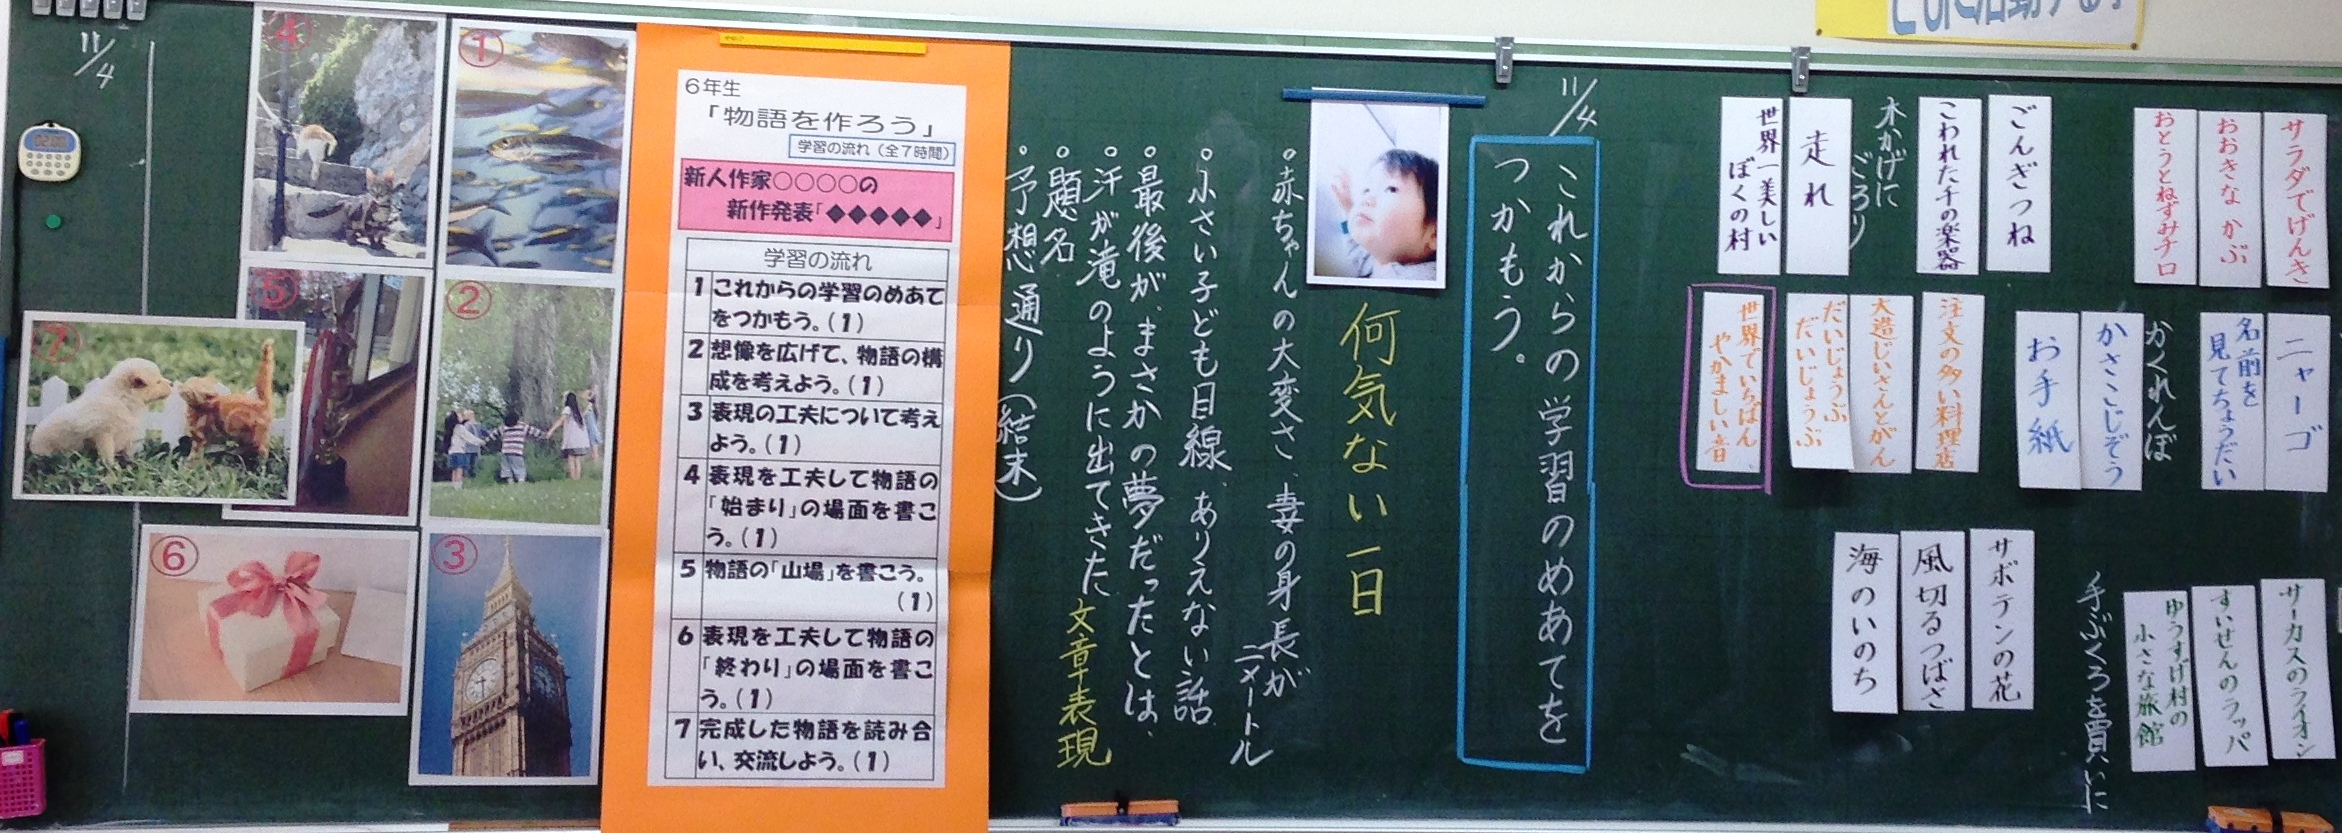 サラダでげんき
おおきな かぶ
おとうとねずみチロ
ニャーゴ
名前を
見てちょうだい
かくれんぼ
かさこじぞう
お手紙
サーカスのライオン
すいせんのラッパ
ゆうすげ村の
小さな旅館
手ぶくろを買いに
ごんぎつね
こわれた千の楽器
木かげに
ごろり
走れ
世界一美しい
ぼくの村
注文の多い料理店
大造じいさんとがん
だいじょうぶ
だいじょうぶ
世界でいちばん
やかましい音
サボテンの花
風切るつばさ
海のいのち
11/4
これからの学習のめあてを
つかもう。
何気ない一日
。赤ちゃんの大変さ、妻の身長が
二メートル
。小さい子ども目線、ありえない話
。最後が、まさかの夢だったとは、
。汗が滝のように出てきた 文章表現
。題名
。予想通り(結末)
6年生
「物語を作ろう」
学習の流れ(全7時間)
新人作家○○○○の
新作発表「◆◆◆◆◆」
学習の流れ
1 これからの学習のめあて
をつかもう。(1)
2 想像を広げて、物語の構
成を考えよう。(1)
3 表現の工夫について考え
よう。(1)
4 表現を工夫して物語の
「始まり」の場面を書こ
う。(1)
5 物語の「山場」を書こう。
(1)
6 表現を工夫して物語の
「終わり」の場面を書こ
う。(1)
7 完成した物語を読み合
い、交流しよう。(1)
①
②
③
④
⑤
⑥
⑦
11/4